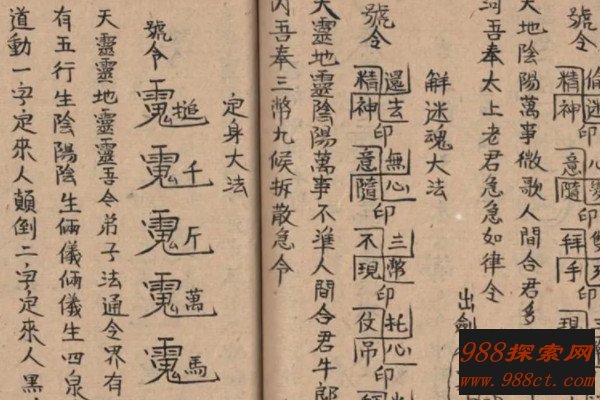 號令
天地陰陽萬事微歌人間合君多
河吾奉太上老君急急如律令
出劍
解迷魂大法
號令
精還神去印
意無隨心印
不三現幣印
仗托吊心印
天靈地靈陰陽萬事不準人間合君牛郎
內吾奉三幣九候拆散急令
定身大法
號令
搥
千
斤
萬
馬
天靈靈地靈靈吾令弟子法通令界有
有五行生陰陽陰生倆儀倆儀生四泉
道動一字定來人顛倒二字定來人黑
988探索网
www.988ct.com